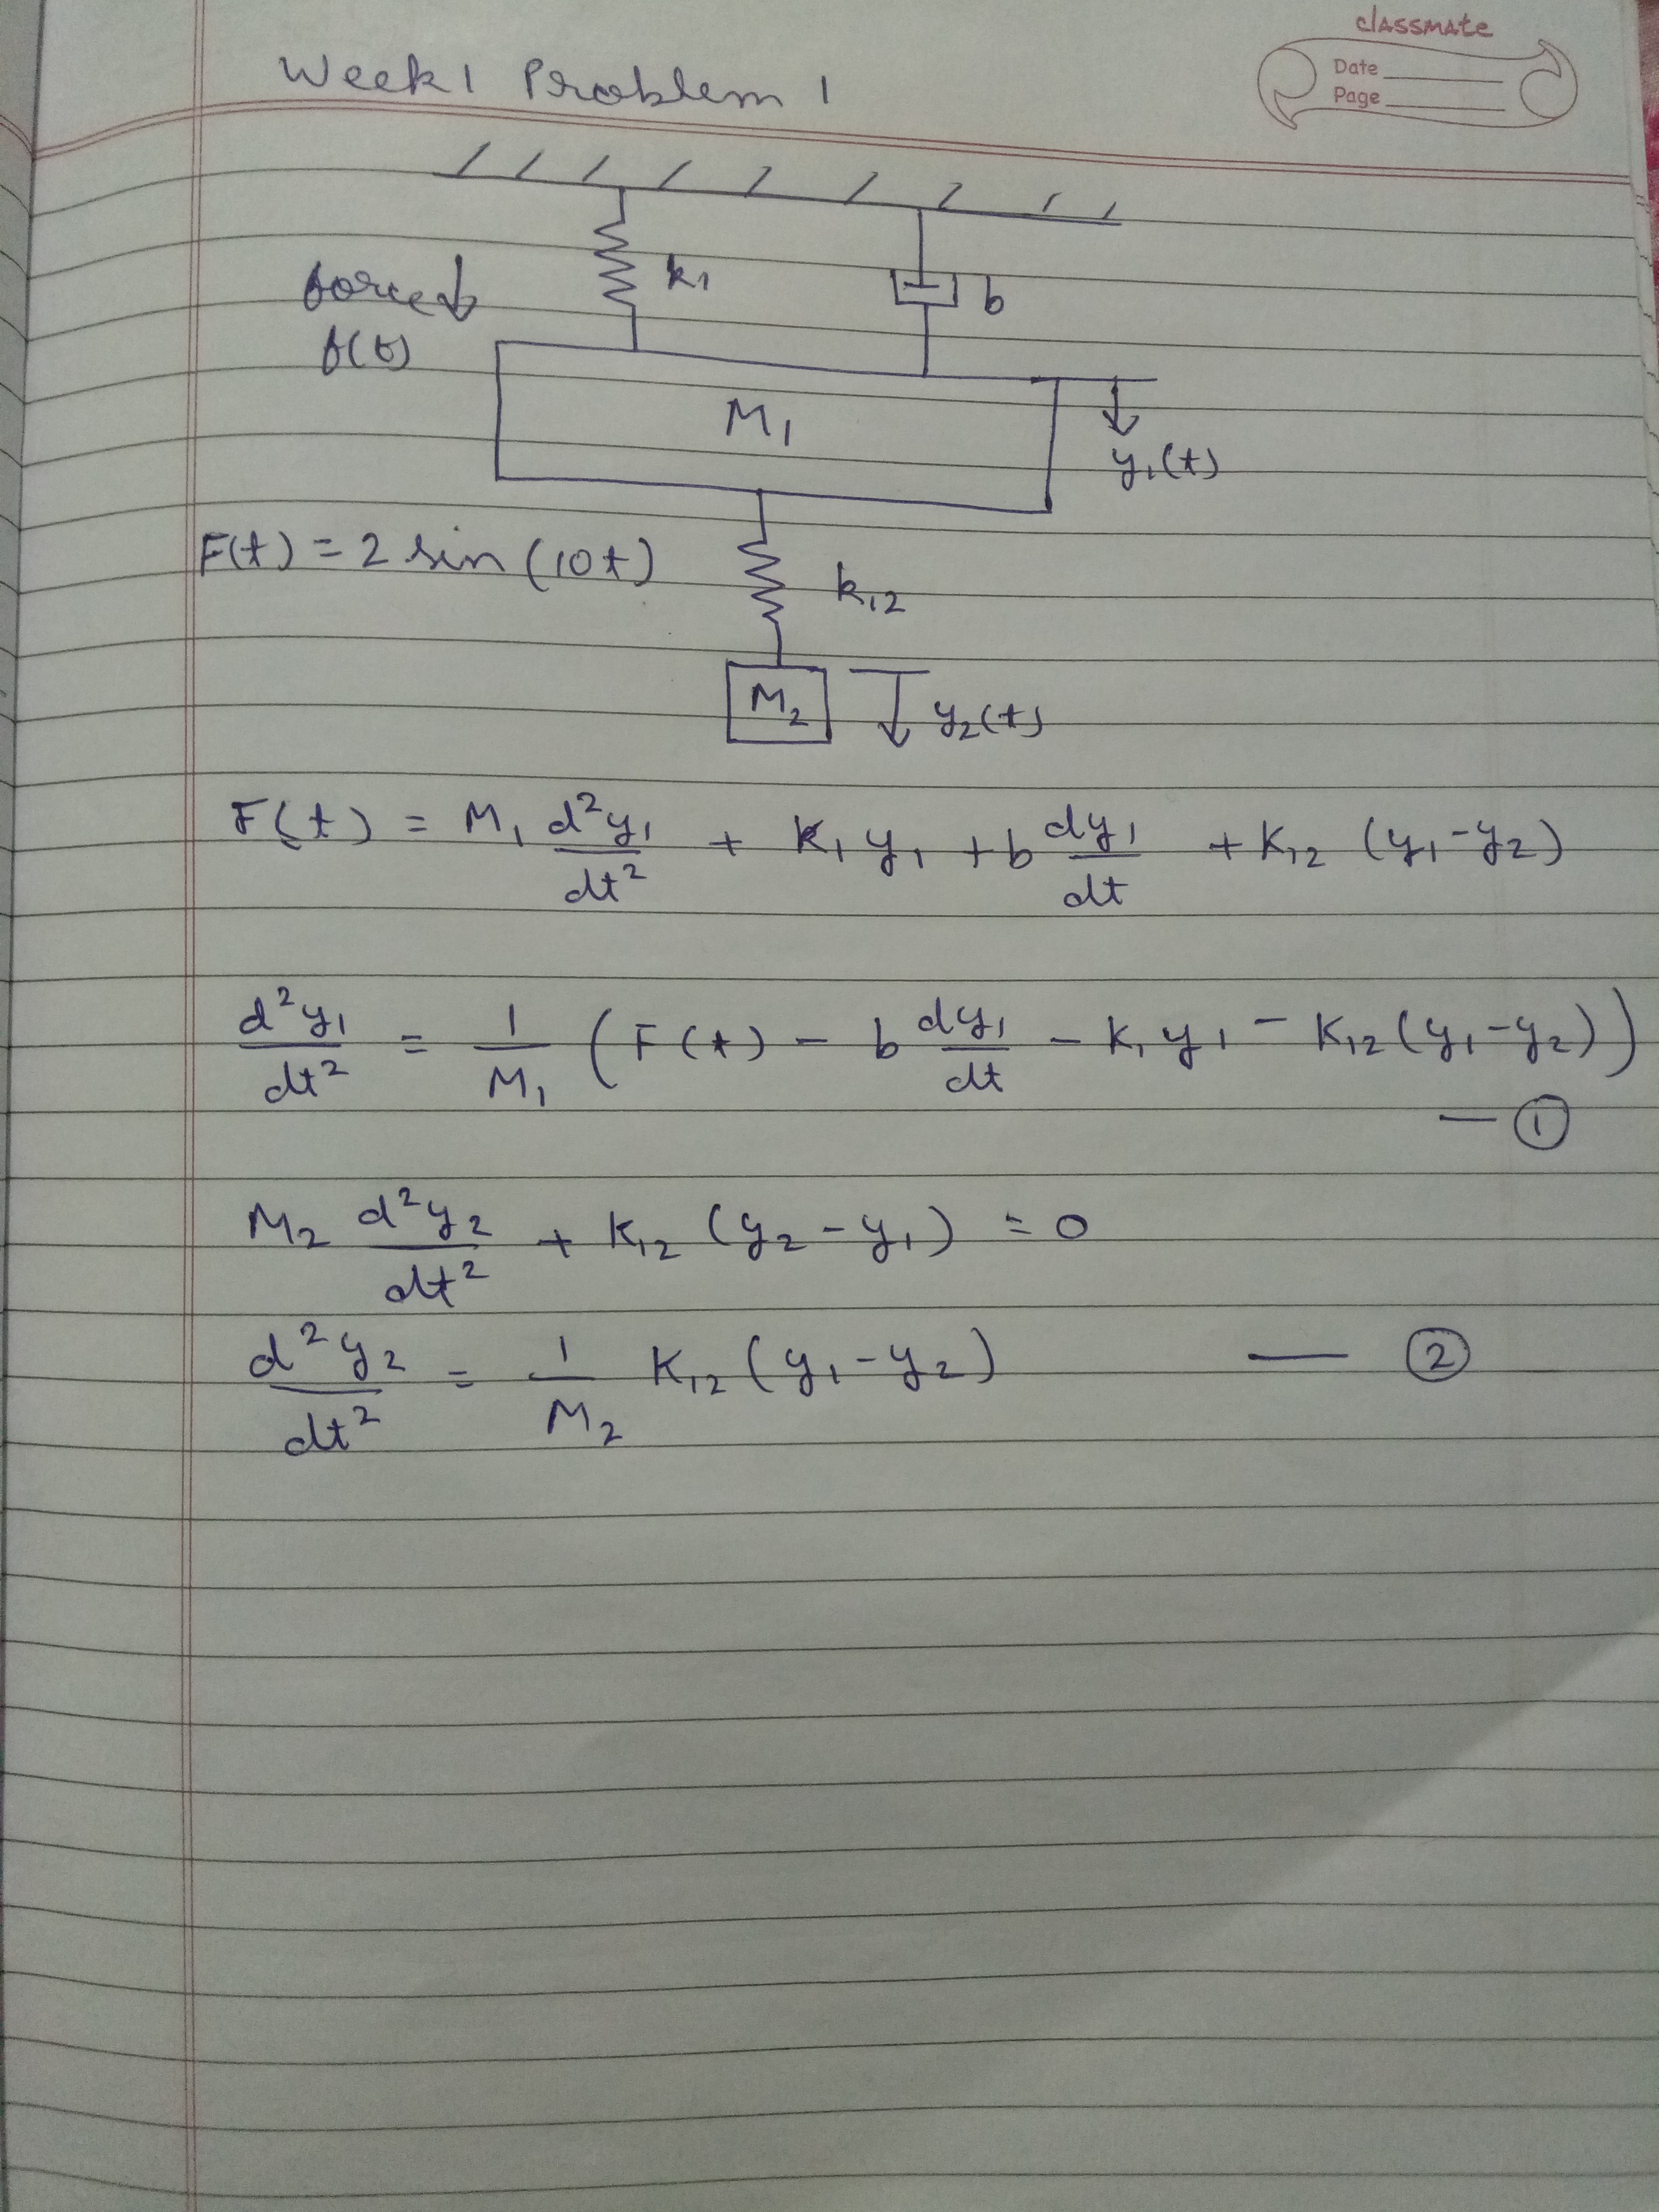 classmate
Date
Page
Week 1 Problem 1
k1
b
force
f(t)
M1
y1(t)
F(t) = 2 sin (10t)
k12
M2
y2(t)
F(t) = M1 d²y1/dt² + K1 y1 + b dy1/dt + K12 (y1-y2)
d²y1/dt² = 1/M1 ( F(t) - b dy1/dt - K1 y1 - K12 (y1-y2))
— ①
M2 d²y2/dt² + K12 (y2-y1) = 0
d²y2/dt² = 1/M2 K12 (y1-y2) — ②